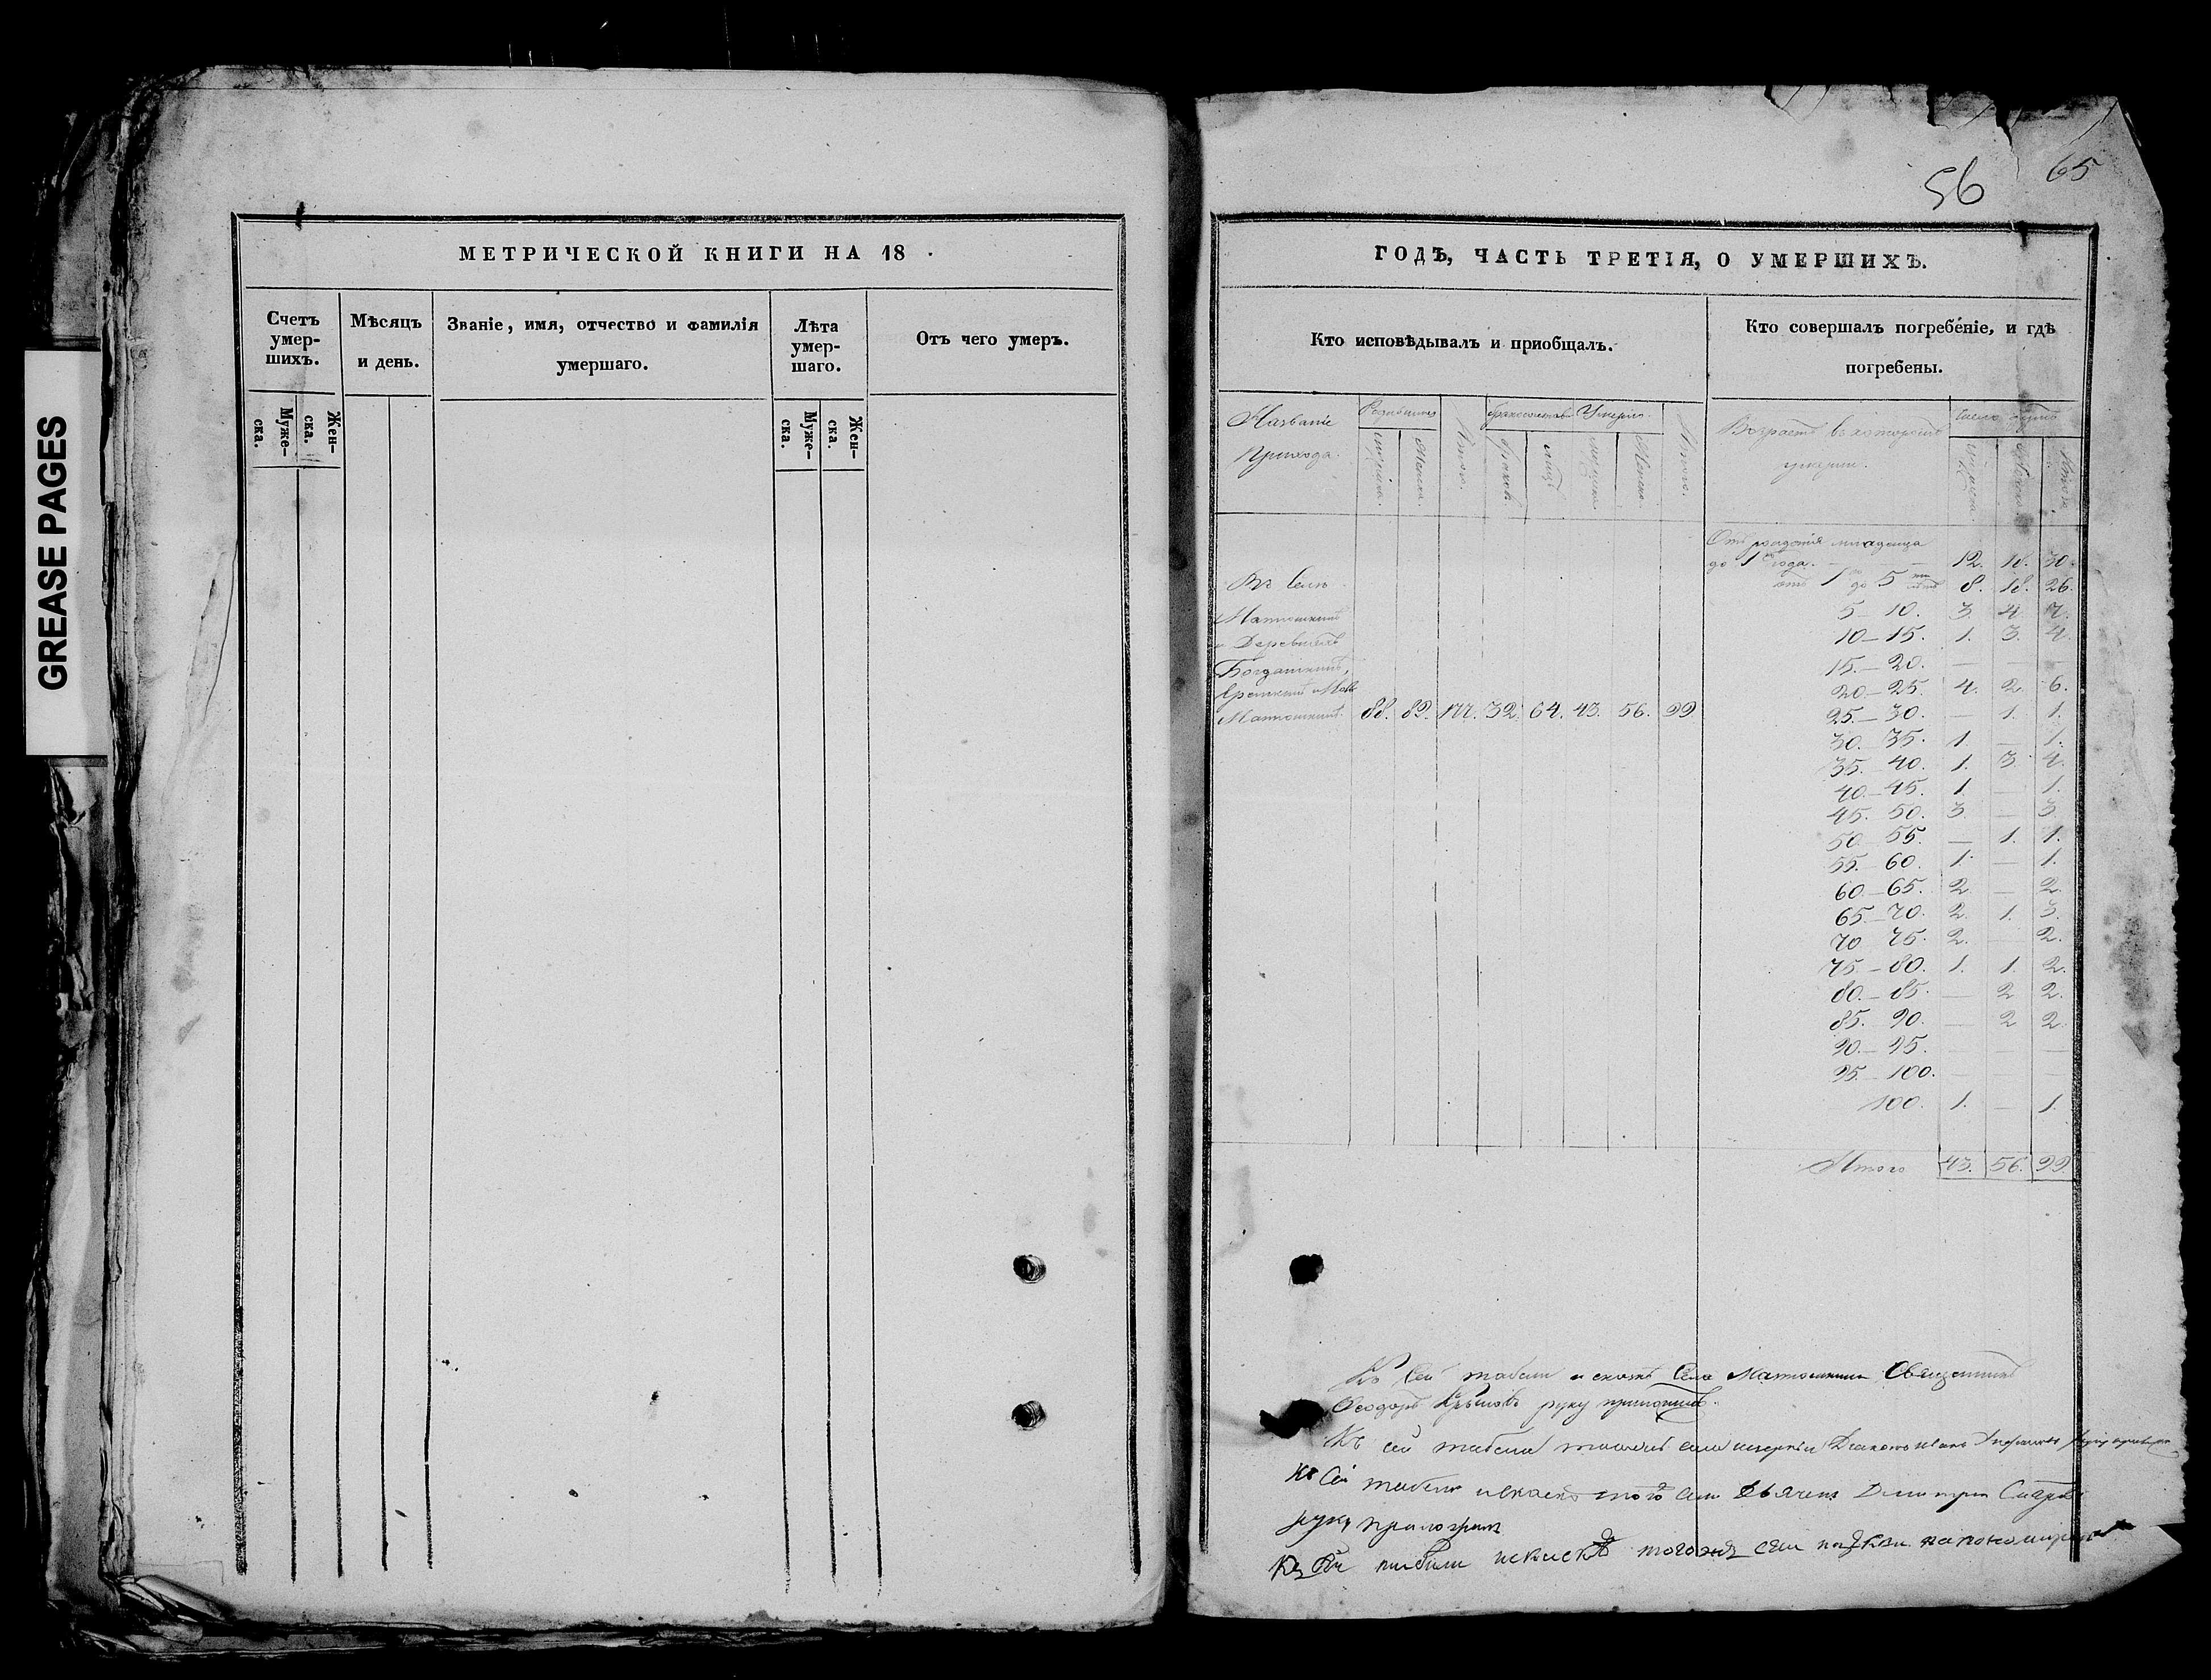 GREASE PAGES
МЕТРИЧЕСКОЙ КНИГИ НА 18 .
Счетъ умер-шихъ.
Мѣсяцъ и день.
Званіе, имя, отчество и фамилія умершаго.
Лѣта умер-шаго.
Отъ чего умеръ.
Муже-ска.
Жен-ска.
Муже-ска.
Жен-ска.
56
65
ГОДЪ, ЧАСТЬ ТРЕТІЯ, О УМЕРШИХЪ.
Кто исповѣдывалъ и пріобщалъ.
Кто совершалъ погребéніе, и гдѣ погребены.
Названіе прихода.
Итого.
браков.
лицъ
Итого.
Возрастъ въ которомъ умерли.
Отъ рожденія младенца
до 1 года. 12. 18. 30.
отъ 1 до 5 8. 18. 26.
5 - 10. 3. 4. 7.
10 - 15. 1. 3. 4.
15. - 20. — — —
20. - 25. 4. 2. 6.
25. - 30. — 1. 1.
30. - 35. 1. — 1.
35. - 40. 1. 3. 4.
40. - 45. 1. — 1.
45. 50. 3. — 3.
50 55. — 1. 1.
55. 60. 1. — 1.
60 - 65. 2. — 2.
65. - 70. 2. 1. 3.
70 75. 2. — 2.
75. - 80. 1. 1. 2.
80. - 85. — 2 2.
85. 90. — 2 2.
90. - 95. — — —
95. - 100. — — —
100. 1. — 1.
Въ Селѣ
Матюшкинѣ
и Деревняхъ
Богдашкинѣ,
Матюшкинѣ. 88. 89. 177. 32. 64. 43. 56. 99
Итого 43. 56. 99.
Къ сей табели и скаскѣ Села Матюшкина Священникъ
Ѳеодоръ руку приложилъ.
Къ сей табели Діаконъ Иванъ
Къ сей табели и скаскѣ того села Дьячекъ Димитрій
руку приложилъ
Къ сей табели и скаскѣ тогожъ села